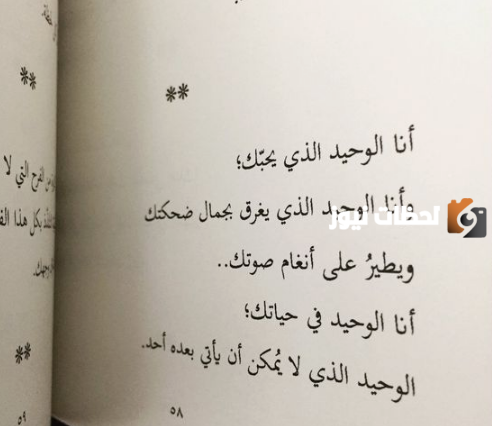 **
أنا الوحيد الذي يحبّك؛
وأنا الوحيد الذي يغرق بجمال ضحكتك
ويطيرُ على أنغام صوتك..
أنا الوحيد في حياتك؛
الوحيد الذي لا يُمكن أن يأتي بعده أحد.
٥٨
لحظات نيوز
**
من الفرح التي لا
بكل هذا
**
٥٩